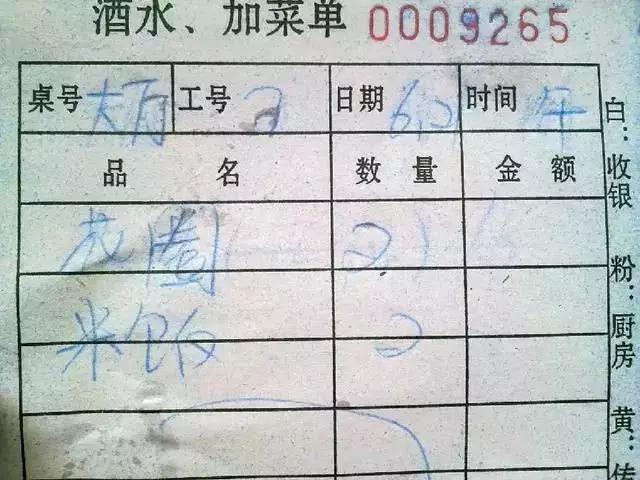 酒水、加菜单 0009265
桌号 大厅 工号 2 日期 6.21 时间 午
品名 数量 金额
花圈 2
米饭 2
白：收银 粉：厨房 黄：传